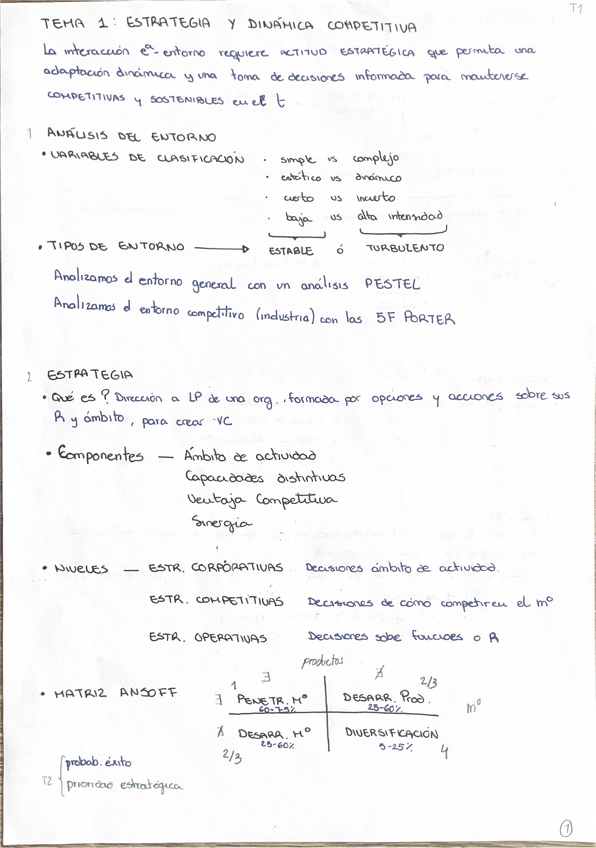 T1
TEMA 1: ESTRATEGIA Y DINÁMICA COMPETITIVA
La interacción eª-entorno requiere ACTITUD ESTRATÉGICA que permita una
adaptación dinámica y una toma de decisiones informada para mantenerse
COMPETITIVAS y SOSTENIBLES en el t
1 ANÁLISIS DEL ENTORNO
• VARIABLES DE CLASIFICACIÓN · simple vs complejo
· estático vs dinámico
· cierto vs incierto
· baja vs alta intensidad
• TIPOS DE ENTORNO → ESTABLE ó TURBULENTO
Analizamos el entorno general con un análisis PESTEL
Analizamos el entorno competitivo (industria) con las 5F PORTER
2 ESTRATEGIA
• Qué es? Dirección a LP de una org., formada por opciones y acciones sobre sus
R y ámbito, para crear VC
• Componentes — Ámbito de actividad
Capacidades distintivas
Ventaja Competitiva
Sinergia
• NIVELES — ESTR. CORPORATIVAS Decisiones ámbito de actividad.
ESTR. COMPETITIVAS Decisiones de cómo competir en el mº
ESTR. OPERATIVAS Decisiones sobe funcioes o R
productos
∃ ∄
1 2/3
• MATRIZ ANSOFF ∃ PENETR. Mº DESARR. Prod. mº
60-75% 25-60%
∄ DESARR. Mº DIVERSIFICACIÓN
25-60% 5-25%
2/3 4
probab. éxito
T2 prioridad estratégica
1